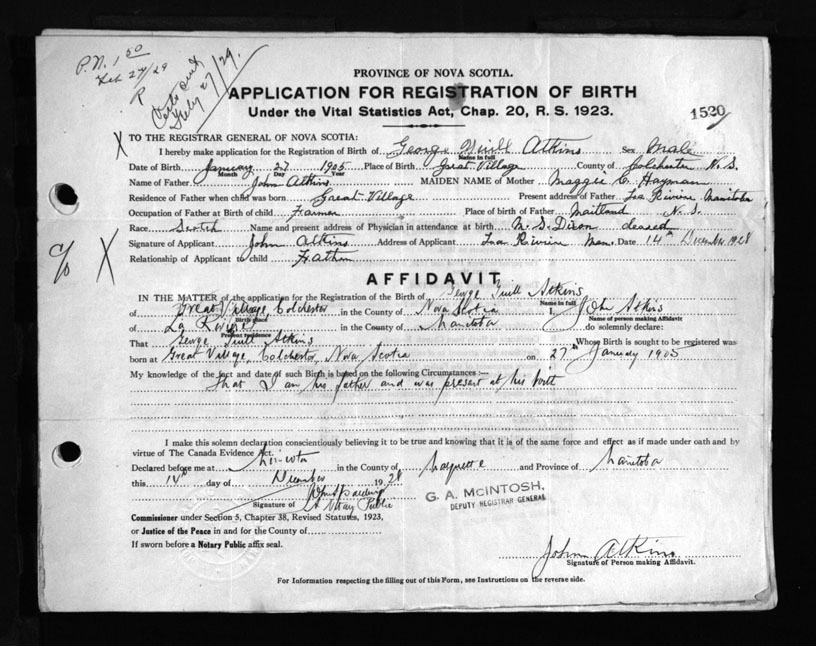 P.N. 1 50
Feb 27/29
P
Certs sent
Feby 27/29.
PROVINCE OF NOVA SCOTIA.
APPLICATION FOR REGISTRATION OF BIRTH
Under the Vital Statistics Act, Chap. 20, R. S. 1923.
1520
X TO THE REGISTRAR GENERAL OF NOVA SCOTIA:
I hereby make application for the Registration of Birth of George Atkins Sex Male
Name in full
Date of Birth January 27 1905 Place of Birth Great Village County of Colchester N.S.
Month Day Year
Name of Father John Atkins MAIDEN NAME of Mother Maggie C. Hayman
Residence of Father when child was born Great Village Present address of Father La Riviere Manitoba
Occupation of Father at Birth of child Farmer Place of birth of Father Maitland N.S.
Race Scotch Name and present address of Physician in attendance at birth M. S. Dixon deceased
c/o X
Signature of Applicant John Atkins Address of Applicant La Riviere Man. Date 14th December 1928
Relationship of Applicant to child Father
AFFIDAVIT
IN THE MATTER of the application for the Registration of the Birth of George Atkins
Name in full
of Great Village, Colchester in the County of Nova Scotia I, John Atkins
Birth place Name of person making Affidavit
of La Riviere in the County of Manitoba do solemnly declare:
Present residence
That George Atkins Whose Birth is sought to be registered was
born at Great Village, Colchester, Nova Scotia on 27th January 1905
My knowledge of the fact and date of such Birth is based on the following Circumstances:—
that I am his father and was present at his birth
I make this solemn declaration conscientiously believing it to be true and knowing that it is of the same force and effect as if made under oath and by
virtue of The Canada Evidence Act.
Declared before me at in the County of and Province of Manitoba
this 14th day of December 1928
Signature of A Notary Public
G. A. McINTOSH,
DEPUTY REGISTRAR-GENERAL
Commissioner under Section 5, Chapter 38, Revised Statutes, 1923,
or Justice of the Peace in and for the County of
If sworn before a Notary Public affix seal.
John Atkins
Signature of Person making Affidavit.
For Information respecting the filling out of this Form, see Instructions on the reverse side.